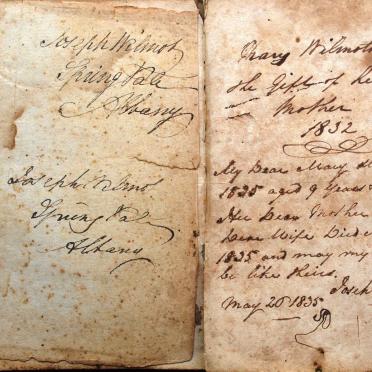 Joseph Wilmot
Spring Vale
Albany
Joseph Wilmot
Spring Vale
Albany
Mary Wilmot
the Gift of her
Mother
1832
My Dear Mary
1835 aged 9 Years &
Her Dear Mother
Dear Wife Died
1835 and may my
be like theirs.
Joseph
May 20 1835